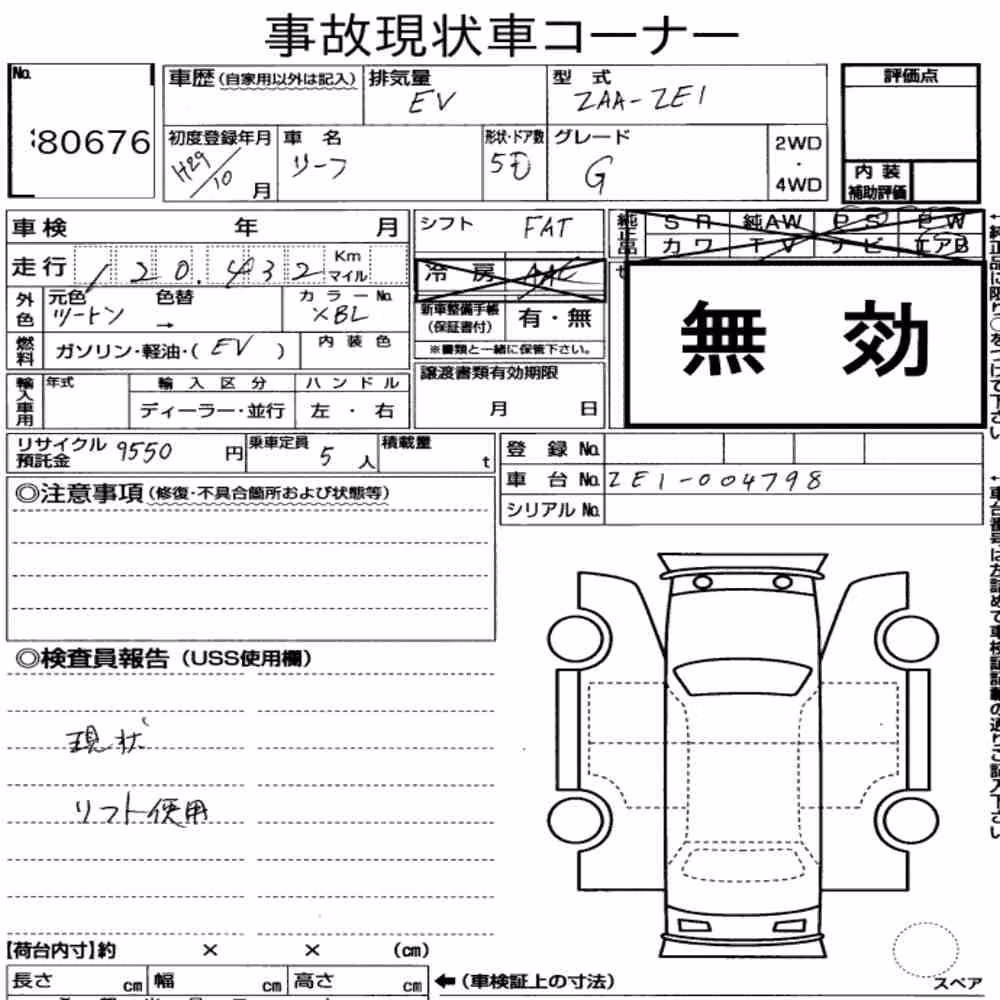 事故現状車コーナー
No. 80676
車歴(自家用以外は記入) 排気量 EV 型式 ZAA-ZE1 評価点
初度登録年月 H29/10月 車名 リーフ 形状・ドア数 5D グレード G 2WD・4WD
内装補助評価
車検 年 月 シフト FAT
純正品 SR 純AW PS PW
カワ TV ナビ エアB
走行 120,432 Km マイル
冷房 AAC
外色 元色 ツートン 色替 → カラーNo. XBL
新車整備手帳(保証書付) 有・無
※書類と一緒に保管下さい。
無効
燃料 ガソリン・軽油・( EV ) 内装色
輸入車用 年式 輸入区分 ハンドル
ディーラー・並行 左・右
譲渡書類有効期限
月 日
←純正品に限り○をつけて下さい
リサイクル預託金 9550円 乗車定員 5人 積載量 t
登録No.
車台No. ZE1-004798
シリアルNo.
←車台番号は左詰めで車検証記載の通りご記入下さい
◎注意事項(修復・不具合箇所および状態等)
◎検査員報告(USS使用欄)
現状
リフト使用
【荷台内寸】約 × × (cm)
長さ cm 幅 cm 高さ cm ←(車検証上の寸法)
スペア